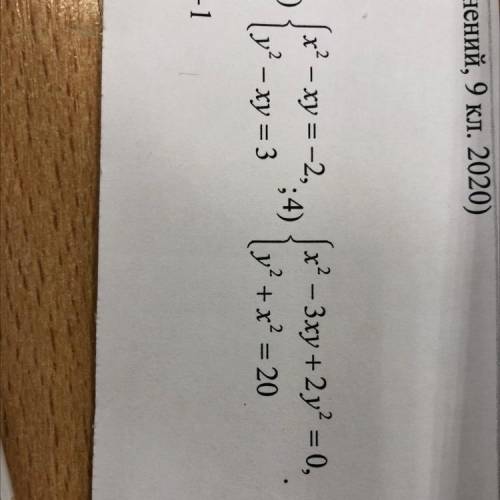 нений, 9 кл. 2020)
) { x² − xy = −2, y² − xy = 3 ; 4) { x² − 3xy + 2y² = 0, y² + x² = 20 .
−1